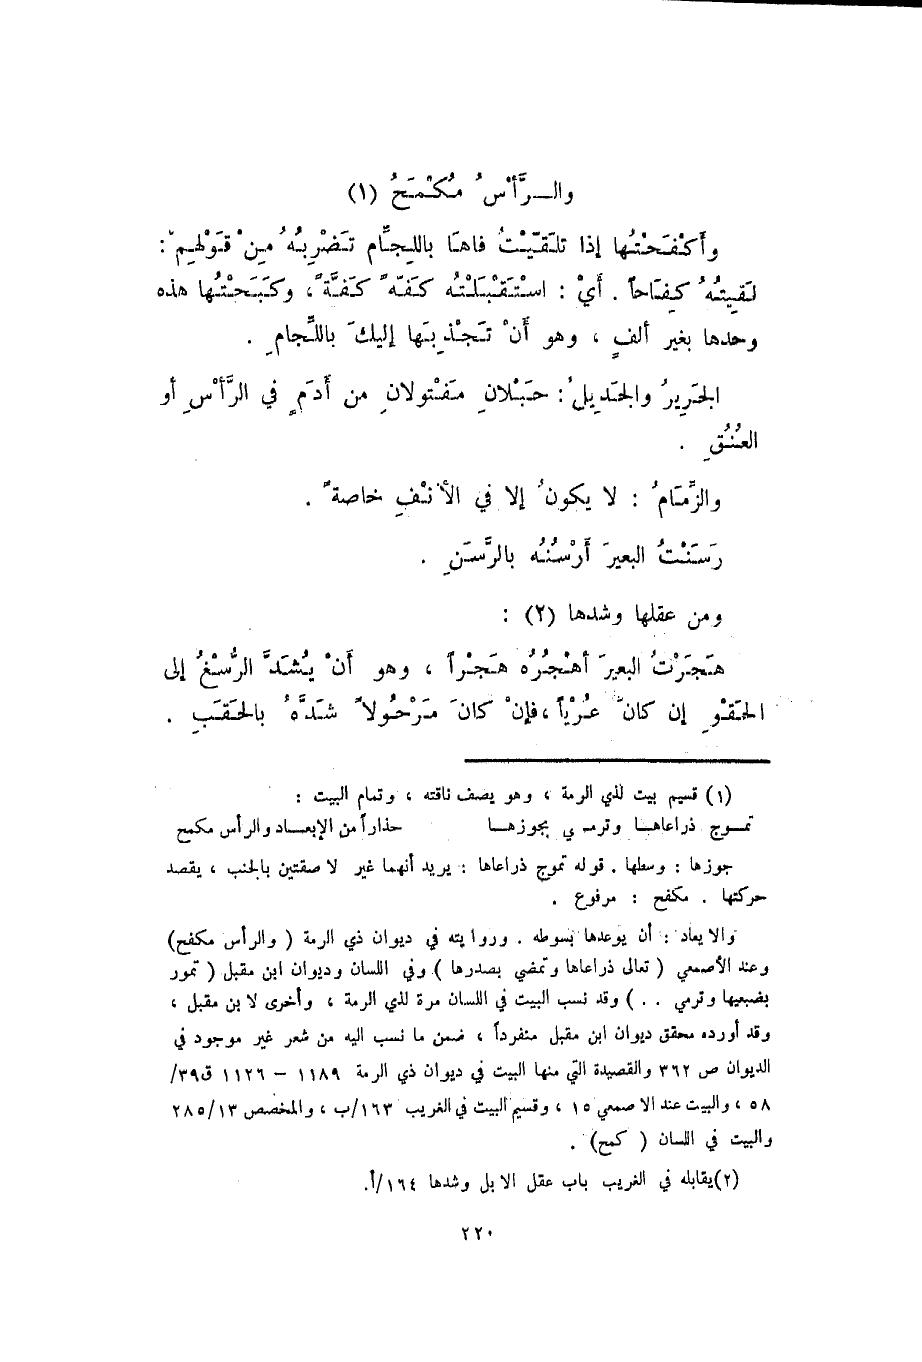 والــرَّأْسُ مُكْمَحُ (١)
وأَكْفَحْتُها إذا تلَقَّيْتُ فاهَا باللِّجَامِ تَضْرِبُهُ مِنْ قَوْلِهِمْ :
لَقِيتُهُ كِفَاحاً . أَيْ : اسْتَقْبَلْتُه كَفَّةً كَفَّةً ، وكَبَحْتُها هذه
وحدها بغير ألفٍ ، وهو أَنْ تَجْذِبَها إليكَ باللِّجامِ .
الجَرِيرُ والجَدِيلُ : حَبْلانِ مَفْتُولانِ من أَدَمٍ في الرَّأْسِ أو
العُنُقِ .
والزِّمَامُ : لا يكونُ إلا في الأَنْفِ خاصةً .
رَسَنْتُ البعيرَ أَرْسُنُه بالرَّسَنِ .
ومن عقلها وشدها (٢) :
هَجَرْتُ البعيرَ أهْجُرُه هَجْراً ، وهو أَنْ يُشَدَّ الرُّسْغُ إلى
الحَقْوِ إن كانَ عُرْياً ، فإنْ كانَ مَرْحُولاً شَدَّهُ بالحَقَبِ .
(١) قسيم بيت لذي الرمة ، وهو يصف ناقته ، وتمام البيت :
تمـوج ذراعاهـا وترمـي بجوزهـا حذاراً من الإيعـاد والرأس مكمح
جوزها : وسطها . قوله تموج ذراعاها : يريد أنهما غير لاصقتين بالجنب ، يقصد
حركتها . مكفح : مرفوع .
والايعاد : أن يوعدها بسوطه . وروايته في ديوان ذي الرمة ( والرأس مكفح)
وعند الأصمعي ( تعالى ذراعاها وتمضي بصدرها ) وفي اللسان وديوان ابن مقبل ( تمور
بضبعيها وترمي . . ) وقد نسب البيت في اللسان مرة لذي الرمة ، وأخرى لابن مقبل ،
وقد أورده محقق ديوان ابن مقبل منفرداً ، ضمن ما نسب اليه من شعر غير موجود في
الديوان ص ٣٦٢ والقصيدة التي منها البيت في ديوان ذي الرمة ١١٨٩ – ١١٢٦ ق٣٩/
٥٨ ، والبيت عند الاصمعي ١٥ ، وقسيم البيت في الغريب ١٦٣/ب ، والمخصص ٢٨٥/١٣
والبيت في اللسان ( كمح) .
(٢)يقابله في الغريب باب عقل الابل وشدها ١٦٤/أ.
٢٢٠